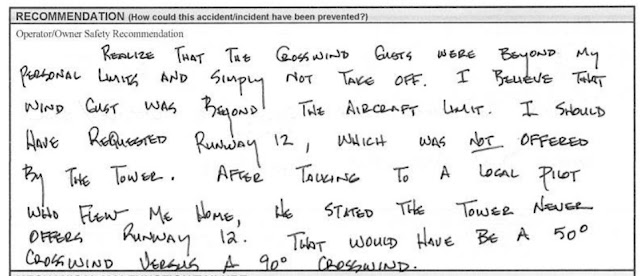 RECOMMENDATION (How could this accident/incident have been prevented?)
Operator/Owner Safety Recommendation
REALIZE THAT THE CROSSWIND GUSTS WERE BEYOND MY
PERSONAL LIMITS AND SIMPLY NOT TAKE OFF. I BELIEVE THAT
WIND GUST WAS BEYOND THE AIRCRAFT LIMIT. I SHOULD
HAVE REQUESTED RUNWAY 12, WHICH WAS NOT OFFERED
BY THE TOWER. AFTER TALKING TO A LOCAL PILOT
WHO FLEW ME HOME, HE STATED THE TOWER NEVER
OFFERS RUNWAY 12. THAT WOULD HAVE BE A 50°
CROSSWIND VERSUS A 90° CROSSWIND.